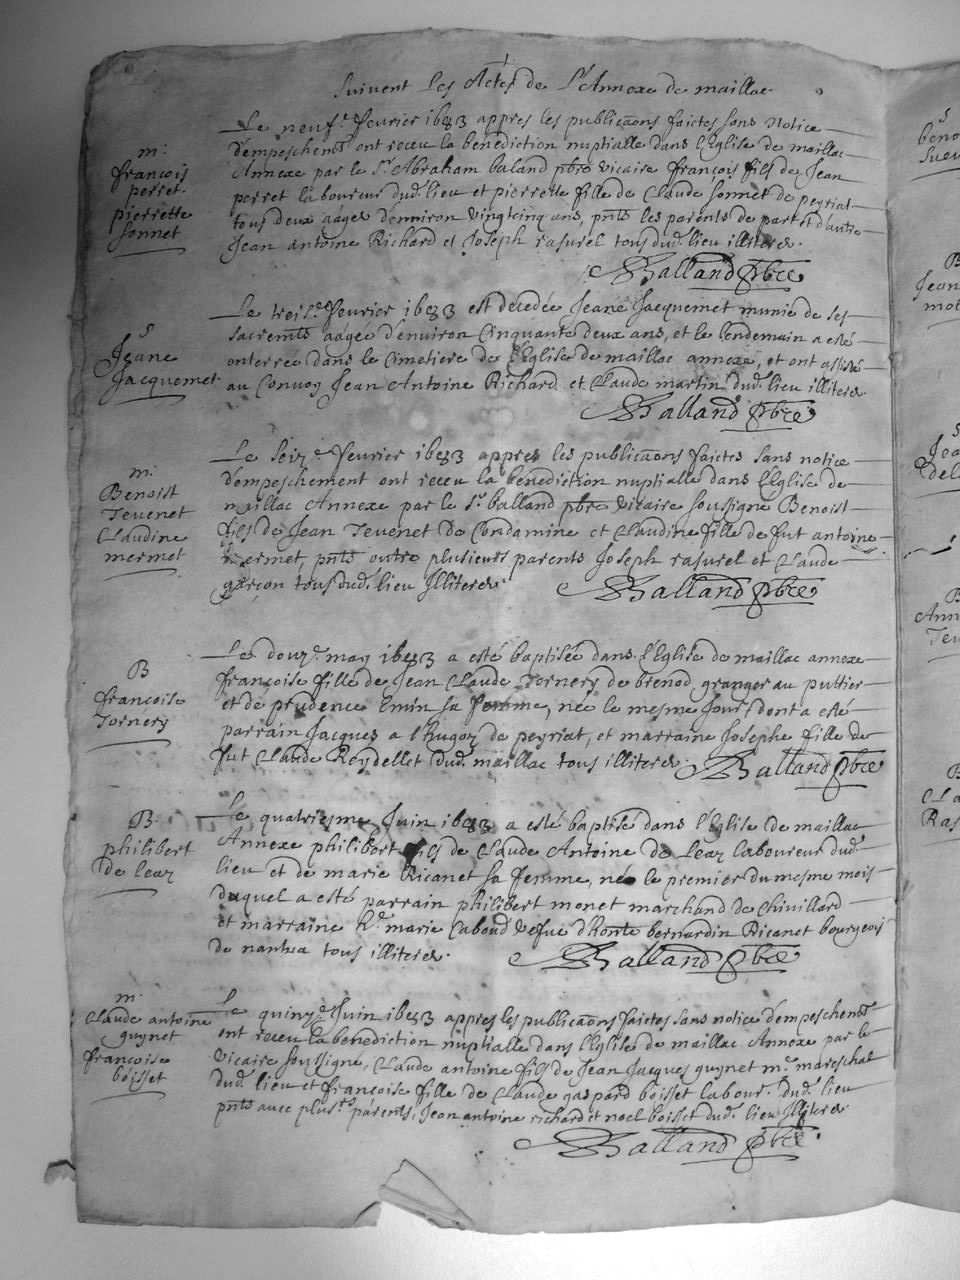 Suivent Les Actes de L'Annexe de maillac
m.
françois
perret.
pierrette
sonnet
Le neuf.e fevrier 1683 appres les publicaons faictes sans Notice
dempeschemt ont receu la benediction nuptialle dans l'Eglise de maillac
Annexe par le Sr Abraham baland pbre vicaire françois fils de Jean
perret laboureur dud. lieu et pierrette fille de Claude sonnet de peyriat
tous deux aages denviron vingtcinq ans, pnts les parents de part et d'autre
Jean antoine Richard et Joseph rasurel tous dud. lieu illiteres.
Balland pbre
S
Jeane
Jacquemet
Le treis.e fevrier 1683 est decedée Jeane Jacquemet munie de ses
sacremts aagée d'environ Cinquante deux ans, et le lendemain a esté
enterrée dans le Cimetiere de l'Eglise de maillac annexe, et ont assisté
au Convoy Jean Antoine Richard et Claude martin dud. lieu illiteres
Balland pbre
m.
Benoist
Tevenet
Claudine
mermet
Le Seiz.e fevrier 1683 appres les publicaons faictes sans notice
d'empeschement ont receu la benediction nuptialle dans l'Eglise de
maillac Annexe par le Sr balland pbre vicaire soussigne Benoist
fils de Jean Tevenet de Condamine et Claudine fille de fut antoine
mermet, pnts outre plusieurs parents Joseph rasurel et Claude
garçon tous dud. lieu Illiteres.
Balland pbre
B
françoise
Tornery
Le douz.e may 1683 a esté baptisée dans l'Eglise de maillac annexe
françoise fille de Jean Claude Tornery de brenod granger au puttier
et de prudence Emin sa femme, née le mesme Jour, dont a esté
parrain Jacques a l'hugoz de peyriat, et marraine Josephe fille de
fut Claude Reydellet dud. maillac tous illiteres.
Balland pbre
B.
philibert
de lear
Le quatriesme Juin 1683 a esté baptisé dans l'Eglise de maillac
Annexe philibert fils de Claude Antoine de Lear laboureur dud.
lieu et de marie Ricanet sa femme, né le premier du mesme mois
duquel a esté parrain philibert monet marchand de Chivillard
et marraine marie Caboud vefue d'honte bernardin Ricanet bourgeois
de nantua tous illiteres.
Balland pbre
m.
Claude antoine
guynet
françoise
boisset
Le quinz.e Juin 1683 appres les publicaons faictes sans notice dempeschemt
ont receu la benediction nuptialle dans l'Eglise de maillac Annexe par le
vicaire soussigne, Claude antoine fils de Jean Jacques guynet m.e mareschal
dud. lieu et françoise fille de Claude gaspard boisset labour. dud. lieu
pnts avec plusrs parents, Jean antoine richard et noel boisset dud. lieu Illiteres
Balland pbre.